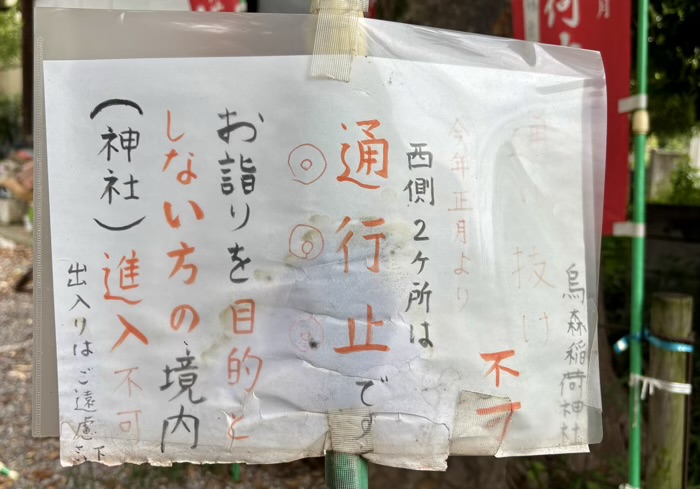 烏森稲荷神社
通り抜け
不可
今年正月より
西側2ヶ所は
通行止です
◎◎◎
お詣りを目的と
しない方の境内
(神社)進入不可
出入りはご遠慮下さい